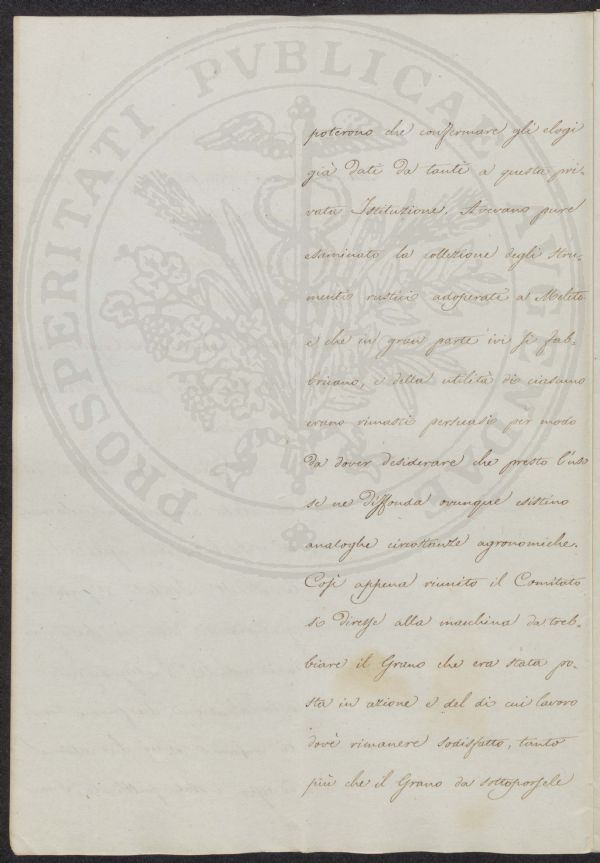 PROSPERITATI PVBLICAE AVGENDAE
poterono che confermare gli elogi
già dati da tanti a questa pri-
vata Istituzione. Avevano pure
esaminato la collezione degli stru-
menti rustici adoperati a Meleto
e che in gran parte ivi si fab-
bricano, e della utilità di ciascuno
erano rimasti persuasi per modo
da dover desiderare che presto l'uso
se ne diffonda ovunque esistino
analoghe circostanze agronomiche.
Così appena riunito il Comitato
si diresse alla macchina da treb-
biare il Grano che era stata po-
sta in azione e del di cui lavoro
dovè rimanere sodisfatto, tanto
più che il Grano da sottoporsele